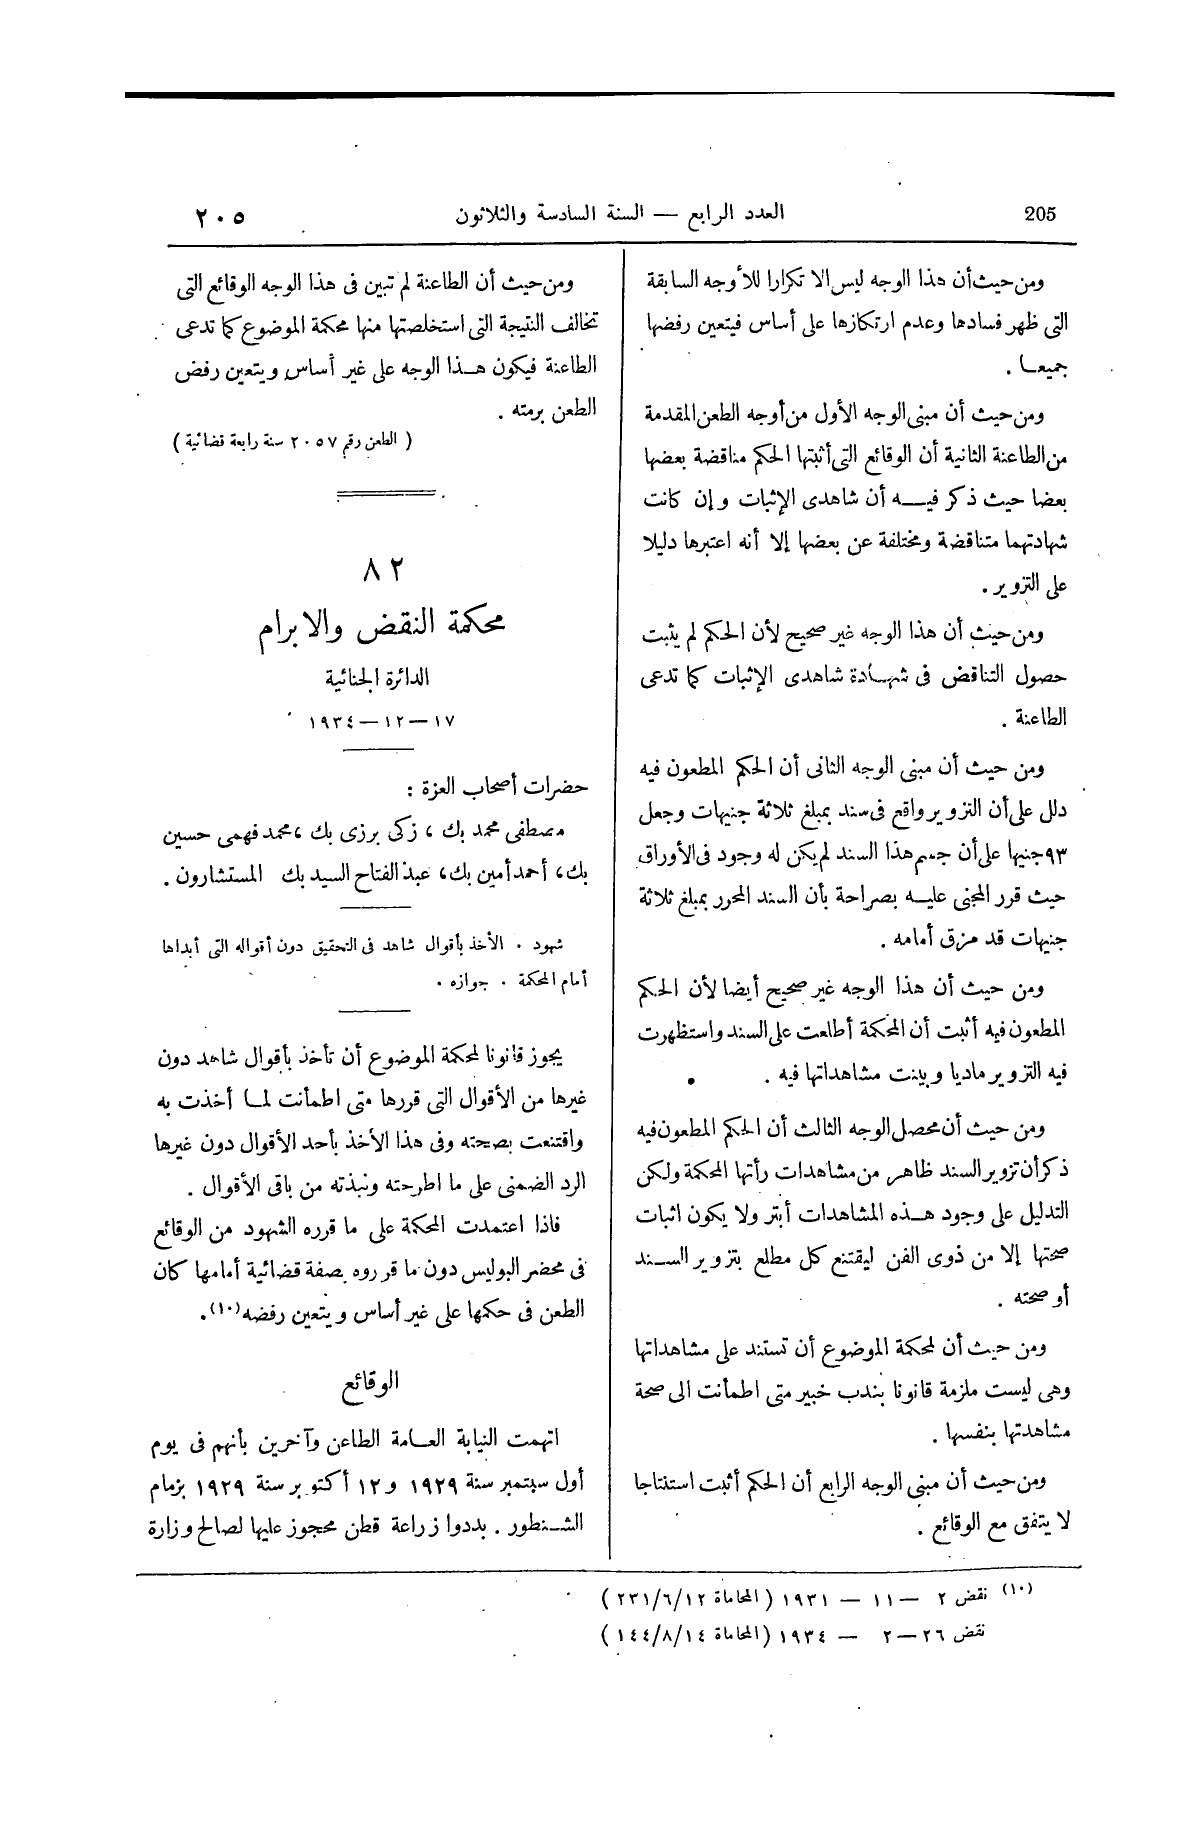 205
العدد الرابع — السنة السادسة والثلاثون
٢٠٥
ومن حيث أن هذا الوجه ليس الا تكرارا للأوجه السابقة
التى ظهر فسادها وعدم ارتكازها على أساس فيتعين رفضها
جميعا .
ومن حيث أن مبنى الوجه الأول من أوجه الطعن المقدمة
من الطاعنة الثانية أن الوقائع التى أثبتها الحكم مناقضة بعضها
بعضا حيث ذكر فيه أن شاهدى الإثبات وإن كانت
شهادتهما متناقضة ومختلفة عن بعضها إلا أنه اعتبرها دليلا
على التزوير .
ومن حيث أن هذا الوجه غير صحيح لأن الحكم لم يثبت
حصول التناقض فى شهادة شاهدى الإثبات كما تدعى
الطاعنة .
ومن حيث أن مبنى الوجه الثانى أن الحكم المطعون فيه
دلل على أن التزوير واقع فى سند بمبلغ ثلاثة جنيهات وجعل
٩٣ جنيها على أن جسم هذا السند لم يكن له وجود فى الأوراق
حيث قرر المجنى عليه بصراحة بأن السند المحرر بمبلغ ثلاثة
جنيهات قد مزق أمامه .
ومن حيث أن هذا الوجه غير صحيح أيضا لأن الحكم
المطعون فيه أثبت أن المحكمة أطلعت على السند واستظهرت
فيه التزوير ماديا وبينت مشاهداتها فيه .
ومن حيث أن محصل الوجه الثالث أن الحكم المطعون فيه
ذكر أن تزوير السند ظاهر من مشاهدات رأتها المحكمة ولكن
التدليل على وجود هذه المشاهدات أبتر ولا يكون اثبات
صحتها إلا من ذوى الفن ليقتنع كل مطلع بتزوير السند
أو صحته .
ومن حيث أن لمحكمة الموضوع أن تستند على مشاهداتها
وهى ليست ملزمة قانونا بندب خبير متى اطمأنت الى صحة
مشاهدتها بنفسها .
ومن حيث أن مبنى الوجه الرابع أن الحكم أثبت استنتاجا
لا يتفق مع الوقائع .
ومن حيث أن الطاعنة لم تبين فى هذا الوجه الوقائع التى
تخالف النتيجة التى استخلصتها منها محكمة الموضوع كما تدعى
الطاعنة فيكون هذا الوجه على غير أساس ويتعين رفض
الطعن برمته .
( الطعن رقم ٢٠٥٧ سنة رابعة قضائية )
٨٢
محكمة النقض والابرام
الدائرة الجنائية
١٧ — ١٢ — ١٩٣٤
حضرات أصحاب العزة :
مصطفى محمد بك ، زكى برزى بك ، محمد فهمى حسين
بك ، أحمد أمين بك ، عبد الفتاح السيد بك المستشارون .
شهود . الأخذ بأقوال شاهد فى التحقيق دون أقواله التى أبداها
أمام المحكمة . جوازه .
يجوز قانونا لمحكمة الموضوع أن تأخذ بأقوال شاهد دون
غيرها من الأقوال التى قررها متى اطمأنت لما أخذت به
واقتنعت بصحته وفى هذا الأخذ بأحد الأقوال دون غيرها
الرد الضمنى على ما اطرحته ونبذته من باقى الأقوال .
فاذا اعتمدت المحكمة على ما قرره الشهود من الوقائع
فى محضر البوليس دون ما قرروه بصفة قضائية أمامها كان
الطعن فى حكمها على غير أساس ويتعين رفضه (١٠) .
الوقائع
اتهمت النيابة العامة الطاعن وآخرين بأنهم فى يوم
أول سبتمبر سنة ١٩٢٩ و ١٢ أكتوبر سنة ١٩٢٩ بزمام
الشنطور . بددوا زراعة قطن محجوز عليها لصالح وزارة
(١٠) نقض ٢ — ١١ — ١٩٣١ ( المحاماة ٢٣١/٦/١٢ )
نقض ٢٦ — ٢ — ١٩٣٤ ( المحاماة ١٤٤/٨/١٤ )